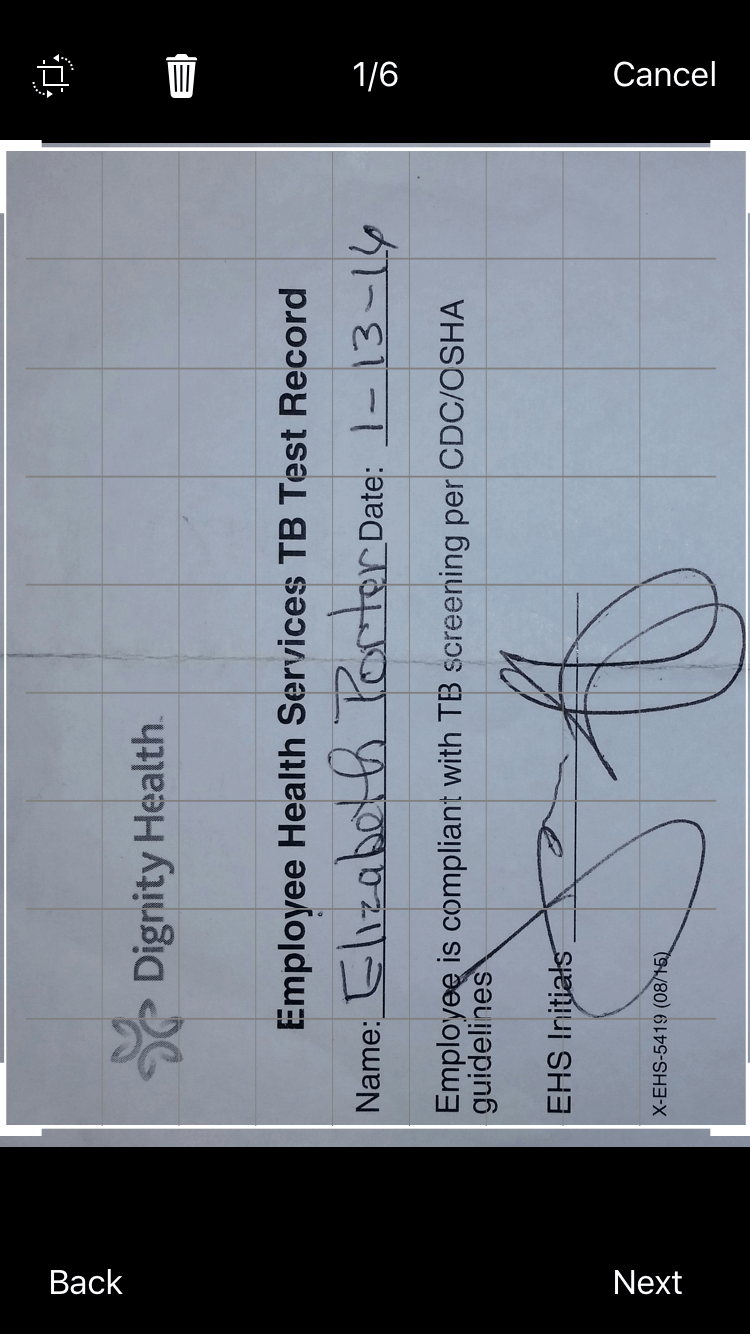 1/6
Cancel
Dignity Health™
Employee Health Services TB Test Record
Name: Elizabeth Porter Date: 1-13-16
Employee is compliant with TB screening per CDC/OSHA
guidelines
EHS Initials
X-EHS-5419 (08/15)
Back
Next